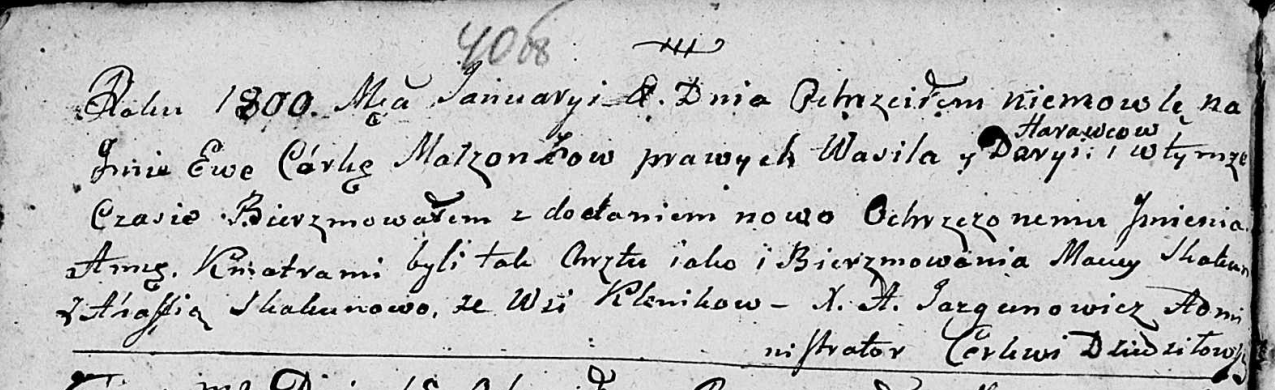 4008
Roku 1800. Mca Januaryi 8. Dnia Ochrzciłem niemowlę na
Jmie Ewe Córkę Małzonkow prawych Wasila y Daryi Harawcow i w tymze
Czasie Bierzmowałem z dodaniem nowo Ochrzczonemu Jmienia
Annę. Kmotrami byli tak Chrztu iako i Bierzmowania Maciey Skakun
z Ahafią Skakunowo, ze Wsi Klenikow – X. A. Jazgunowicz Admi
nistrator Cerkwi Dziedziłow